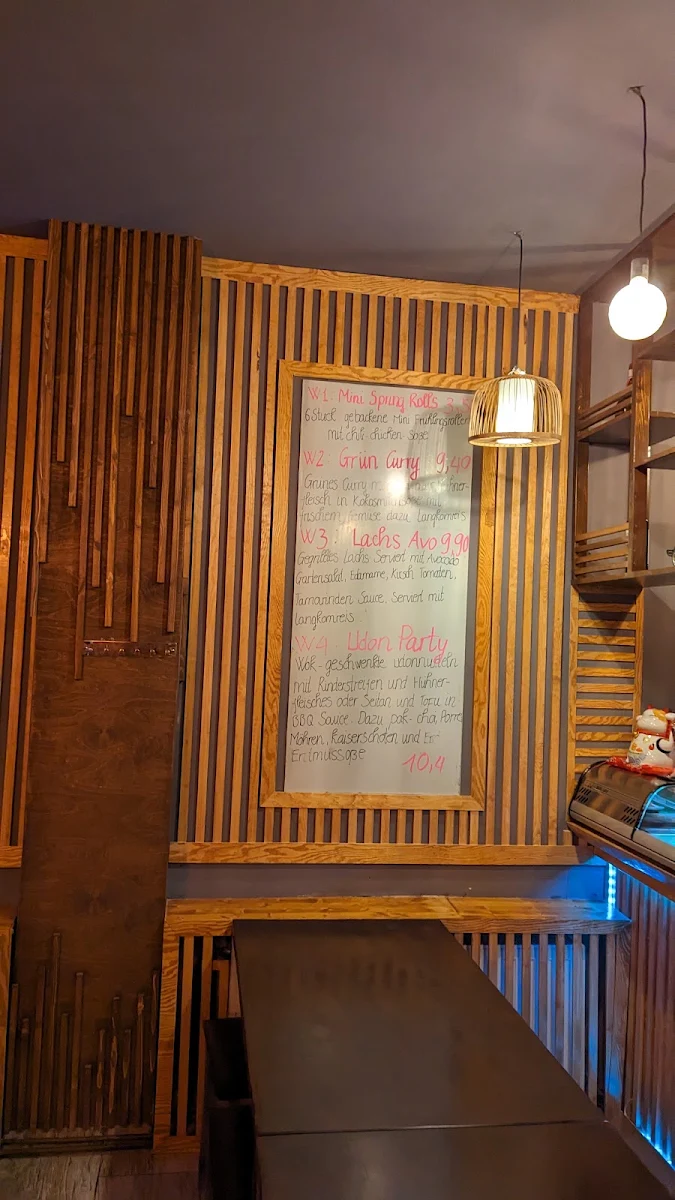 W1. Mini Spring Rolls 3,
6 Stück gebackene Mini Frühlingsrollen
mit chili chicken Soße
W2. Grün Curry 9,40
Grünes Curry
fleisch in Kokosmilch mit
frischem Gemüse dazu Langkornreis
W3. Lachs Avo 9,90
Gegrilltes Lachs Serviert mit Avocado
Gartensalat, Edamame, Kirsch Tomaten,
Tamarinden Sauce. Serviert mit
Langkornreis.
W4. Udon Party
Wok-geschwenkte udonnudeln
mit Rinderstreifen und Hühner-
fleisches oder Seitan und Tofu in
BBQ Sauce. Dazu pak-choi, Porre
Möhren, Kaiserschoten und Er
Erdnusssoße
10,4